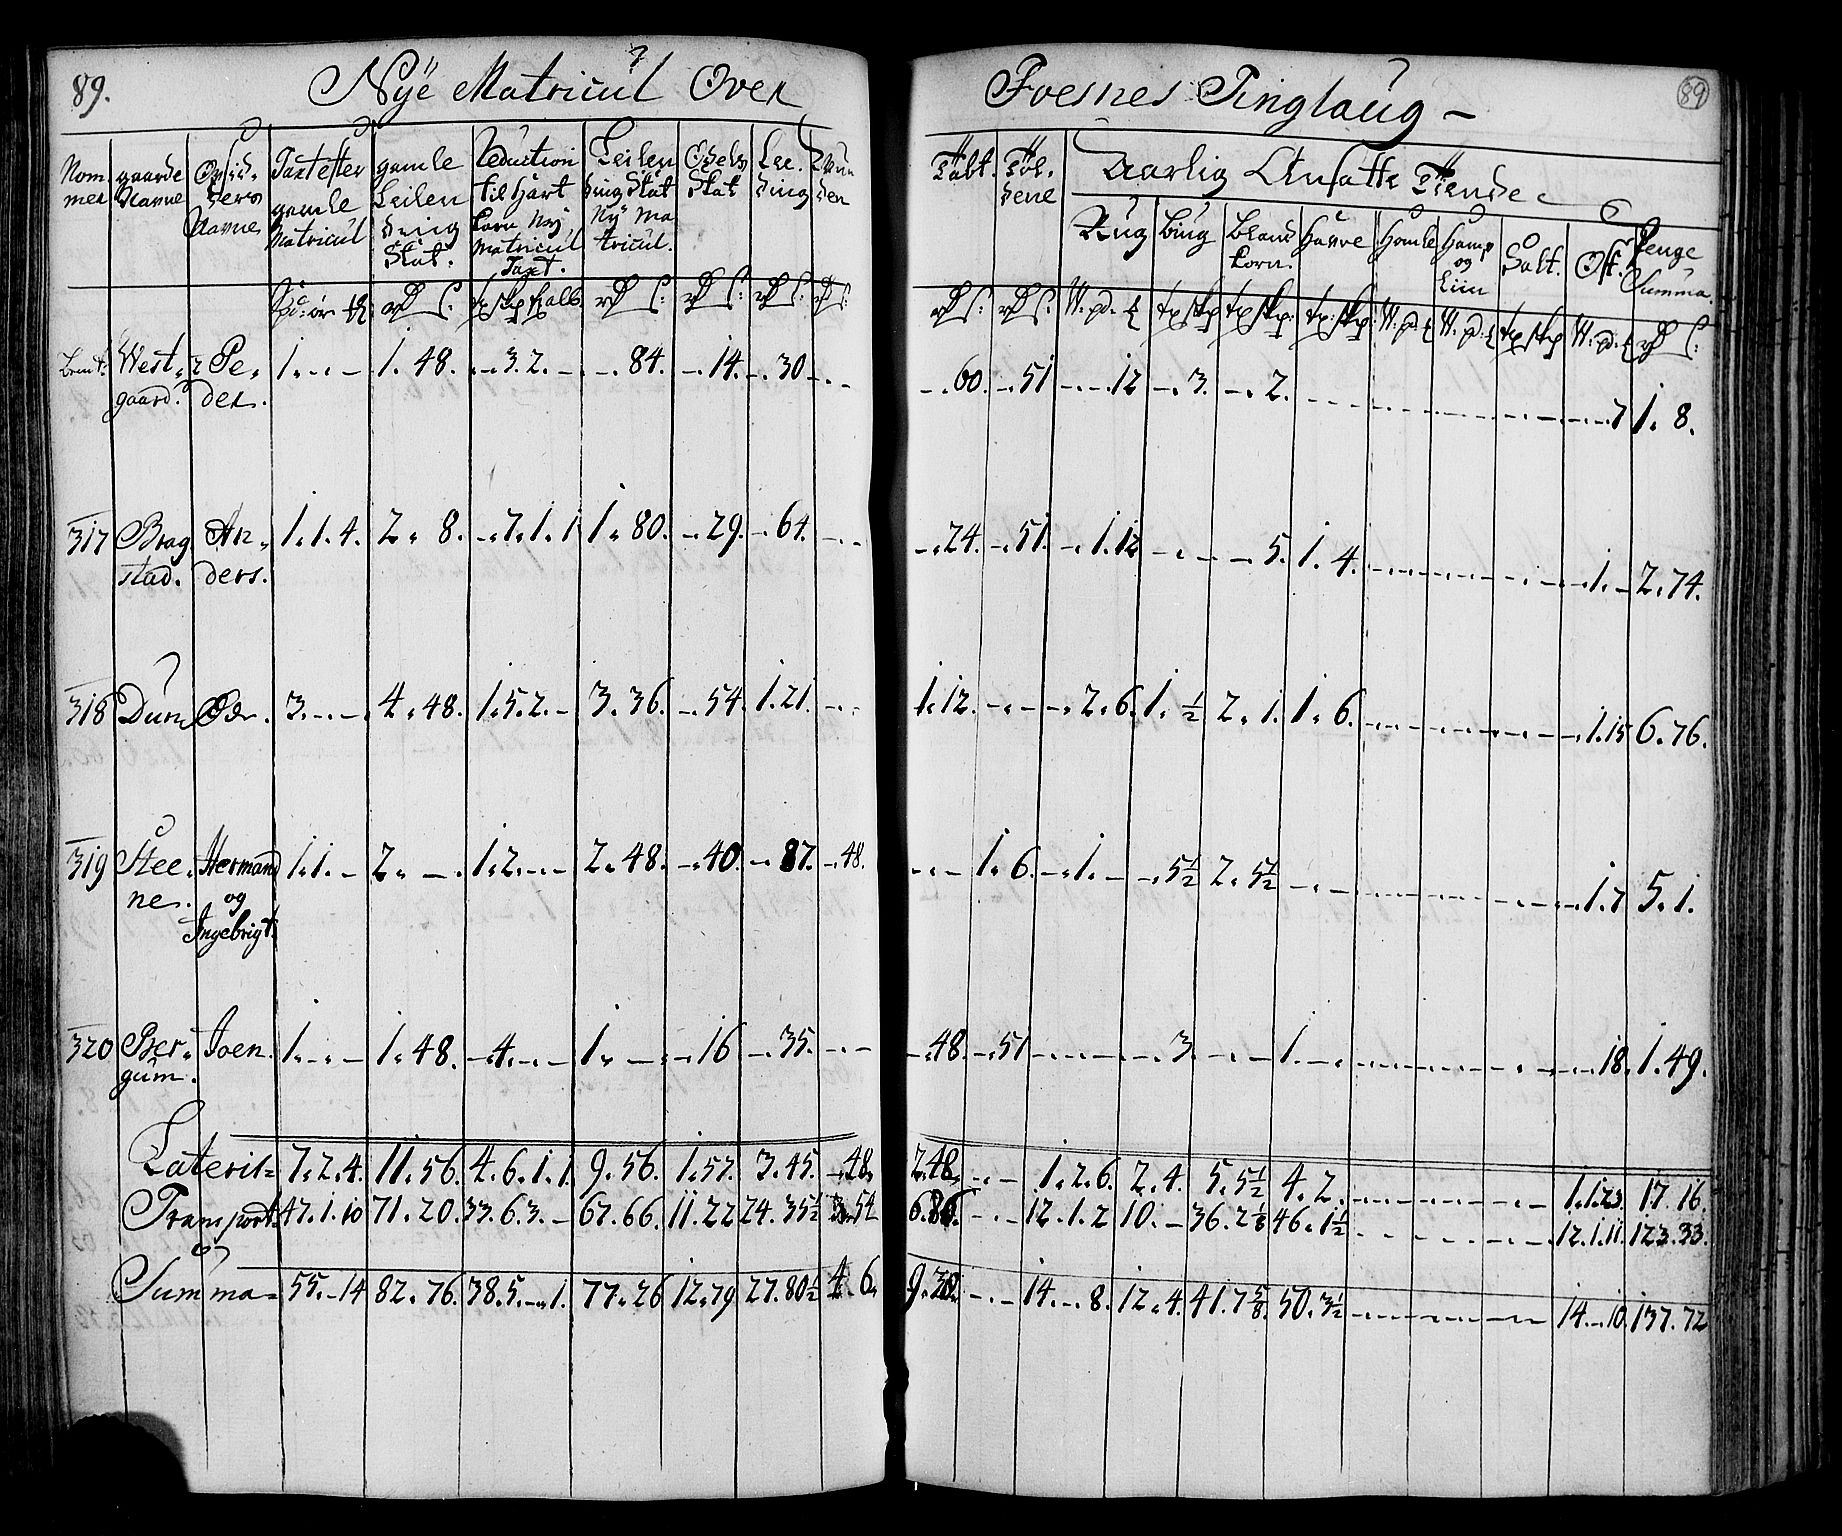 89. Nÿe Matricül Over Foesnes Tinglaüg - 89
Nommer gaarde Navne Opsidders Navne Taxt efter gamle Matricül gamle Leilending Skat. Reduction til Hart korn Nÿ Matricül Taxt. Leilending Skat Nÿ Matricül. Odels Skat Lee. ding
Aarlig Ansatte Tiende
Rüg Büg Bland korn. Havre Homle Hamp og Liin Salt. Ost. Penge Summa.
West gaard. Peder. 1. - - 1. 48. - 3. 2. - - 84. - 14. - 30 - - - 60. - 51 - - 12 - 3. - 2. - - 7 1. 8.
317 Bragstad. Anders. 1. 1. 4. 2. 8. - 7. 1. 1 1. 80. - 29. - 64. - - - 24. - 51. - 1. 12 - - - 5. 1. 4. - - 1. - 2. 74.
318 Dün Odr. 3. - - 4. 48. 1. 5. 2. - 3. 36. - 54. 1. 21. - - 1. 12. - - - 2. 6. 1. ½ 2. 1. 1. 6. - - 1. 15 6. 76.
319 Steene. Hermand og Ingebrigt. 1. 1. - 2. - 1. 2. - - 2. 48. - 40. - 87. - 48. - - 1. 6. - 1. - - 5½ 2. 5½ - - - 1. 7 5. 1.
320 Bergüm. Joen. 1. - - 1. 48. - 4. - - 1. - - 16 - 35. - - - 48. - 51 - - - - 3. - - 1. - - - 18. 1. 49.
Lateris = 7. 2. 4. 11. 56. 4. 6. 1. 1. 9. 56. 1. 57. 3. 45. - 48. 2. 48. - - 1. 2. 6. 2. 4. 5. 5½ 4. 2. - - 1. 1. 23. 17. 16.
Transport 47. 1. 10 71. 20. 33. 6. 3. - 67. 66. 11. 22 24. 35½ 3. 54 6. 86. - - 12. 1. 2 10. - 36. 2⅛ 46. 1½ - - 12. 1. 11. 123. 33.
Summa = 55. - 14 82. 76. 38. 5. - 1. 77. 26 12. 79 27. 80½ 4. 6. 9. 38. - - 14. - 8. 12. 4. 41. 7⅝ 50. 3½ - - 14. - 10. 137. 72